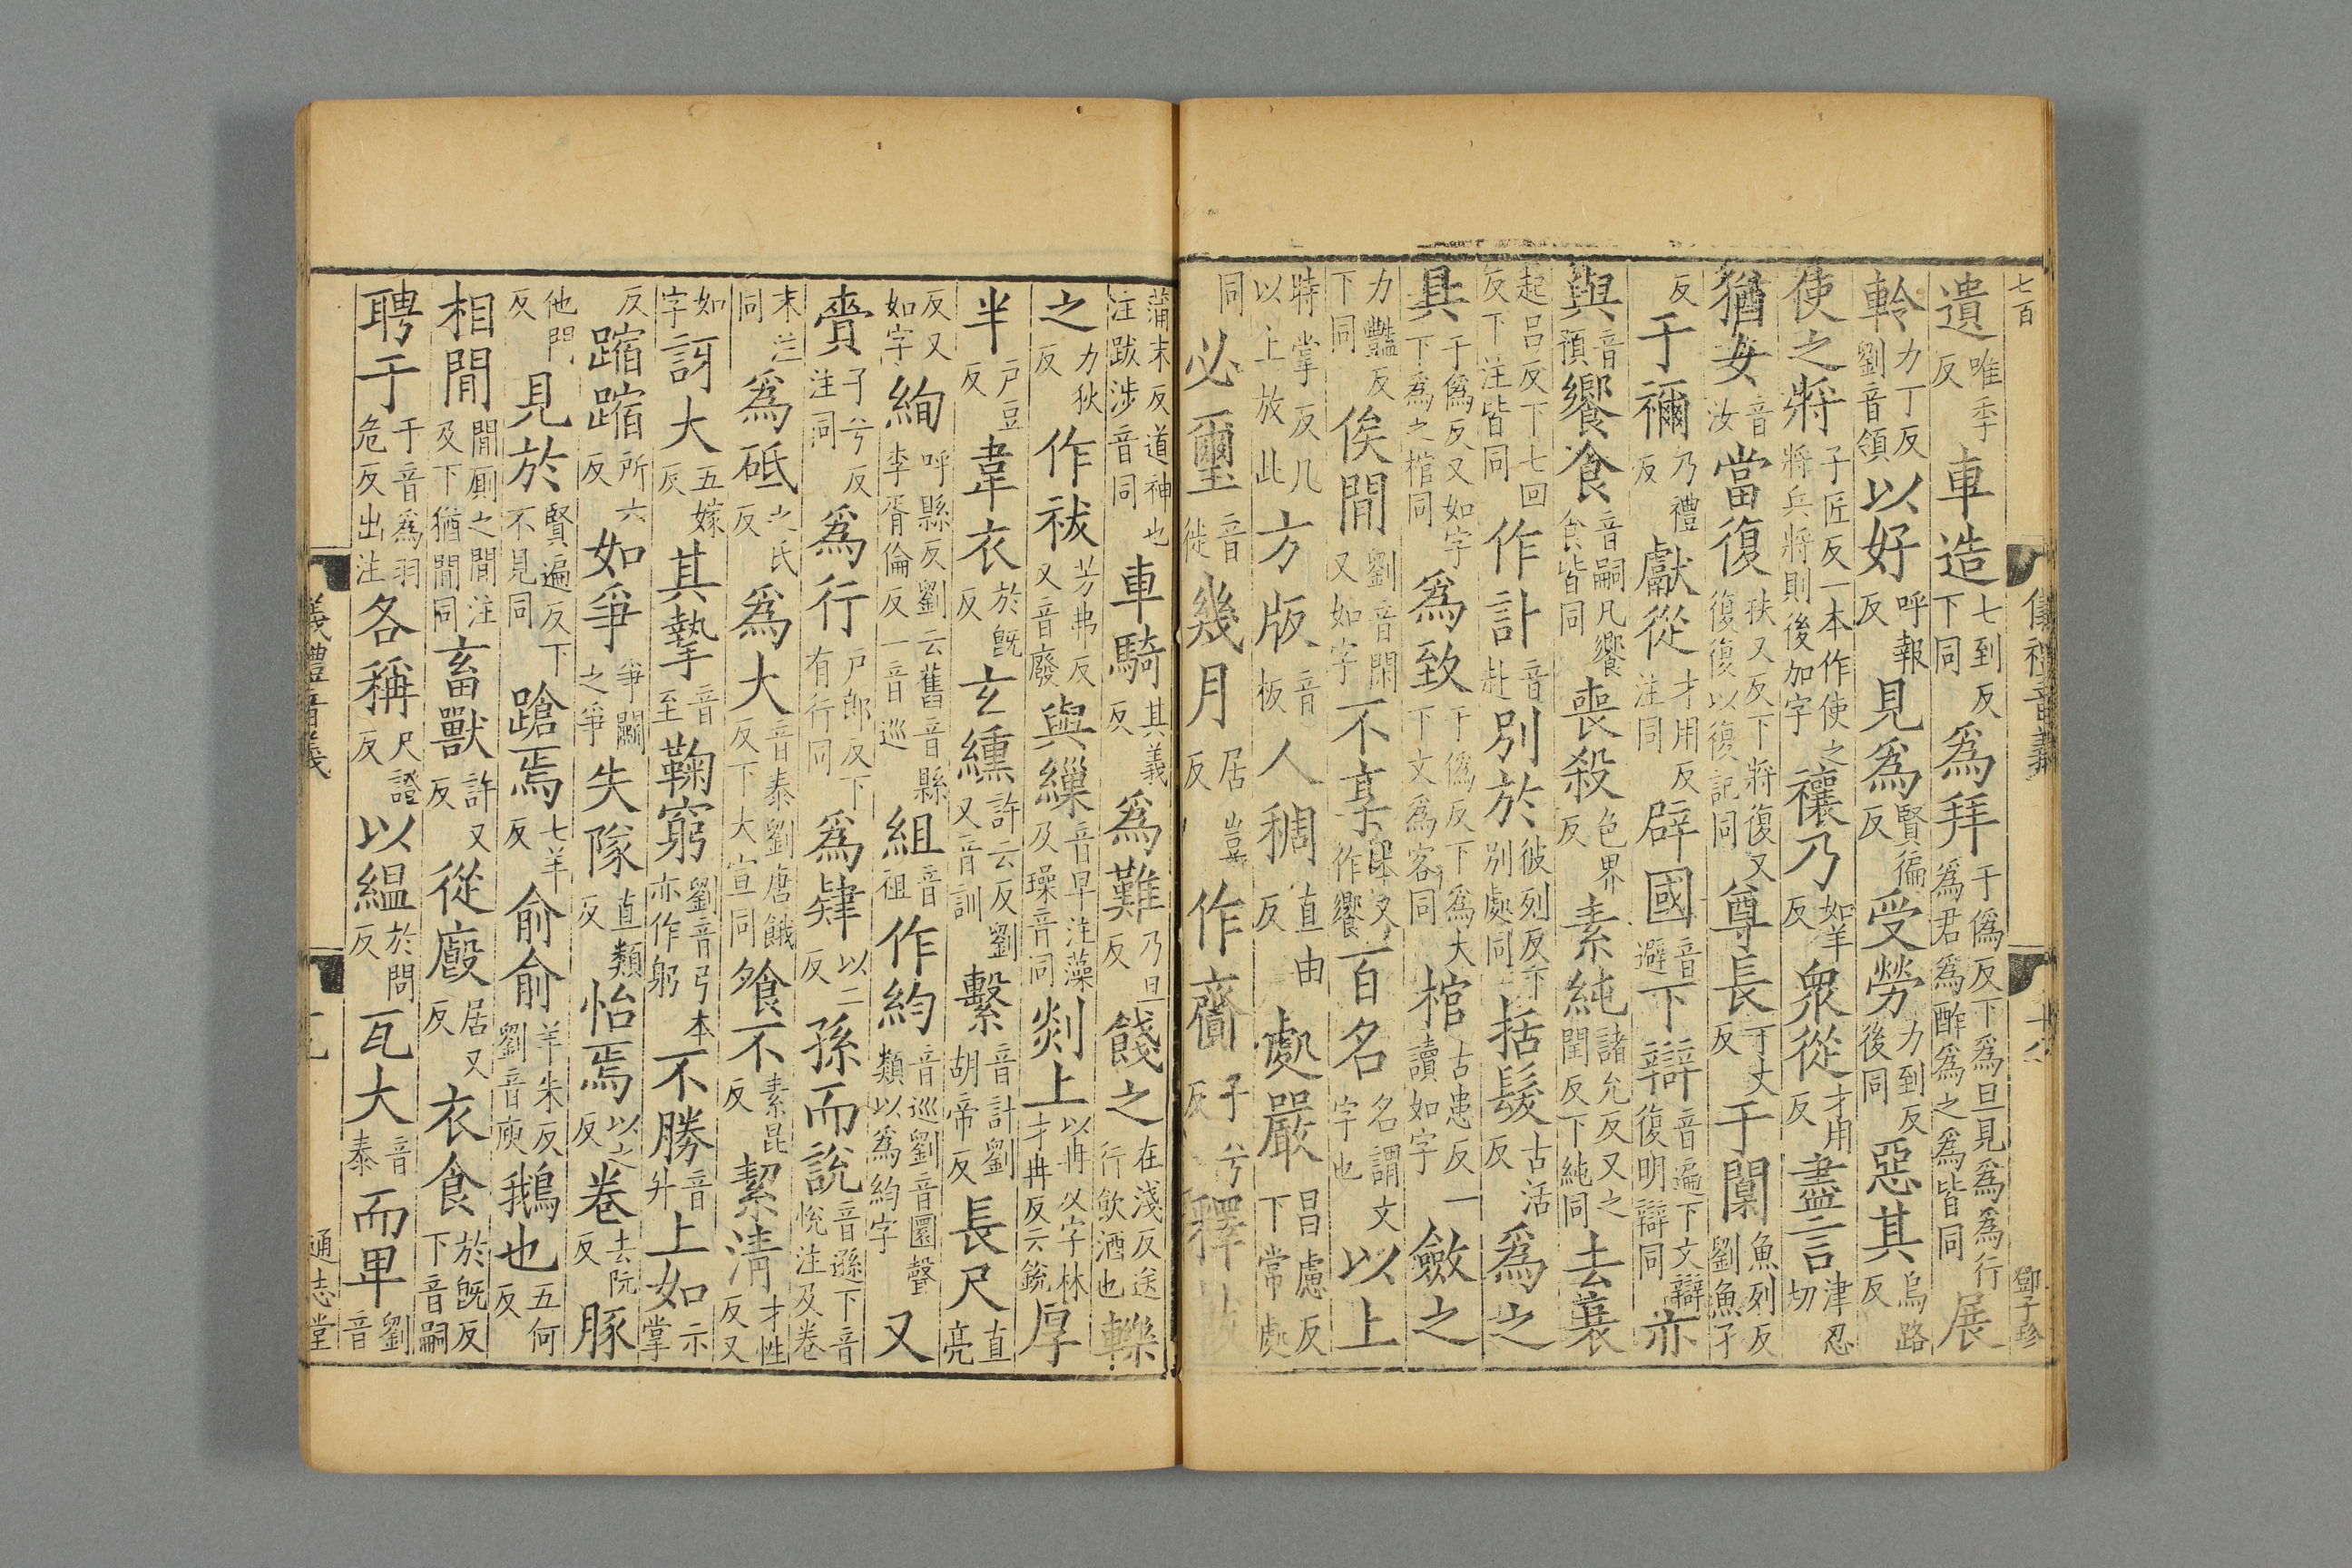 七百 儀禮音義 十八 鄧子珍
遺唯季反車造七到反下同爲拜于僞反下爲旦見爲爲行爲君爲酢爲之爲皆同展
軨力丁反劉音領以好呼報反見爲賢徧反受勞力到反後同惡其烏路反
使之將子匠反一本作使之將兵將則後如字禳乃如羊反衆從才用反盡言津忍切
猶女音汝當復扶又反下將復又復復以復記同尊長丁丈反于闑魚列反劉魚孑
反于禰乃禮反獻從才用反注同辟國音避下辯音遍下文辯復明辯同亦
與音預饗食音嗣凡饗食皆同喪殺色界反素純諸允反又之閏反下純同去裘
起呂反下七回反下注皆同作訃音赴別於彼列反下別處同括髮古活反爲之
具于僞反又如字下爲之棺同爲致于僞反下爲大下文爲客同棺古患反一讀如字斂之
力豔反下同俟閒劉音閑又如字不稾本又作饗百名名謂文字也以上
時掌反凡以上放此方版音板人稠直由反處嚴昌慮反下常處
同必璽音徙幾月居豈反作齎子兮反釋
蒲末反道神也注跋涉音同車騎其義反爲難乃旦反餞之在淺反送行飲酒也轢
之力狄反作祓芳弗反又音廢與繅音早注藻及璪音同剡上以冉反字林才冉反云銳厚
半戶豆反韋衣於旣反玄纁許云反劉又音訓繫音計劉胡帝反長尺直亮
反又如字絢呼縣反劉云舊音縣李胥倫反一音巡組音祖作約音巡劉音圜聲類以爲約字又
齎子兮反注同爲行戶郎反下有行同爲肄以二反孫而說音遜下音悅注及卷
末注同爲砥之氏反爲大音泰劉唐餓反下大宣同飧不素昆反絜淸才性反又
如字訝大五嫁反其摯音至鞠窮劉音弓本亦作躬不勝音升上如示掌
反蹜蹜所六反如爭爭鬬之爭失隊直類反怡焉以之反卷去阮反豚
他門反見於賢遍反下不見同蹌焉七羊反俞俞羊朱反劉音庾鵝也五何反
相閒閒廁之閒注及下猶閒同畜獸許又反從廐居又反衣食於旣反下音嗣
聘于于音爲羽危反出注各稱尺證反以縕於問反瓦大音泰而畢劉音
義禮音義 十九 通志堂